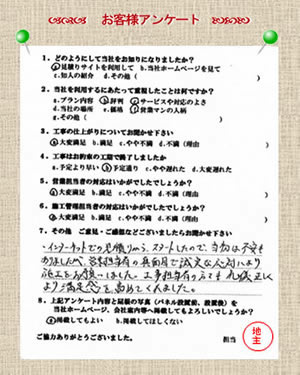 お客様アンケート
1．どのようにして当社をお知りになりましたか？
a.見積りサイトを利用して b.当社ホームページを見て
c.知人の紹介 d.その他（ ）
2．当社を利用するにあたって重視したことは何ですか？
a.プラン内容 b.評判 c.サービスや対応のよさ
d.当社の場所 e.価格 f.営業マンの人柄
g.その他（ ）
3．工事の仕上がりについてお聞かせ下さい
a.大変満足 b.満足 c.やや不満 d.不満（理由 ）
4．工事はお約束の工期で終了しましたか
a.予定より早い b.予定通り c.やや遅れた d.大変遅れた
5．営業担当者の対応はいかがでしたでしょうか？
a.大変満足 b.満足 c.やや不満 d.不満（理由 ）
6．施工管理担当者の対応はいかがでしたでしょうか？
a.大変満足 b.満足 c.やや不満 d.不満（理由 ）
7．その他 ご意見・ご感想などございましたらお聞かせ下さい
インターネットでの見積りから、スタートしたので、当初は不安も
ありましたが、営業担当者の真面目で誠実な人対により
施工をお願いしました。工事担当者の方々も 礼儀正しく
より満足感を高めてくれました。
8．上記アンケート内容と屋根の写真（パネル設置前、設置後）を
当社ホームページ、会社案内等へ掲載してもよろしいでしょうか？
a.掲載してもよい b.掲載してはしくない
ご協力ありがとうございました。 担当
地主